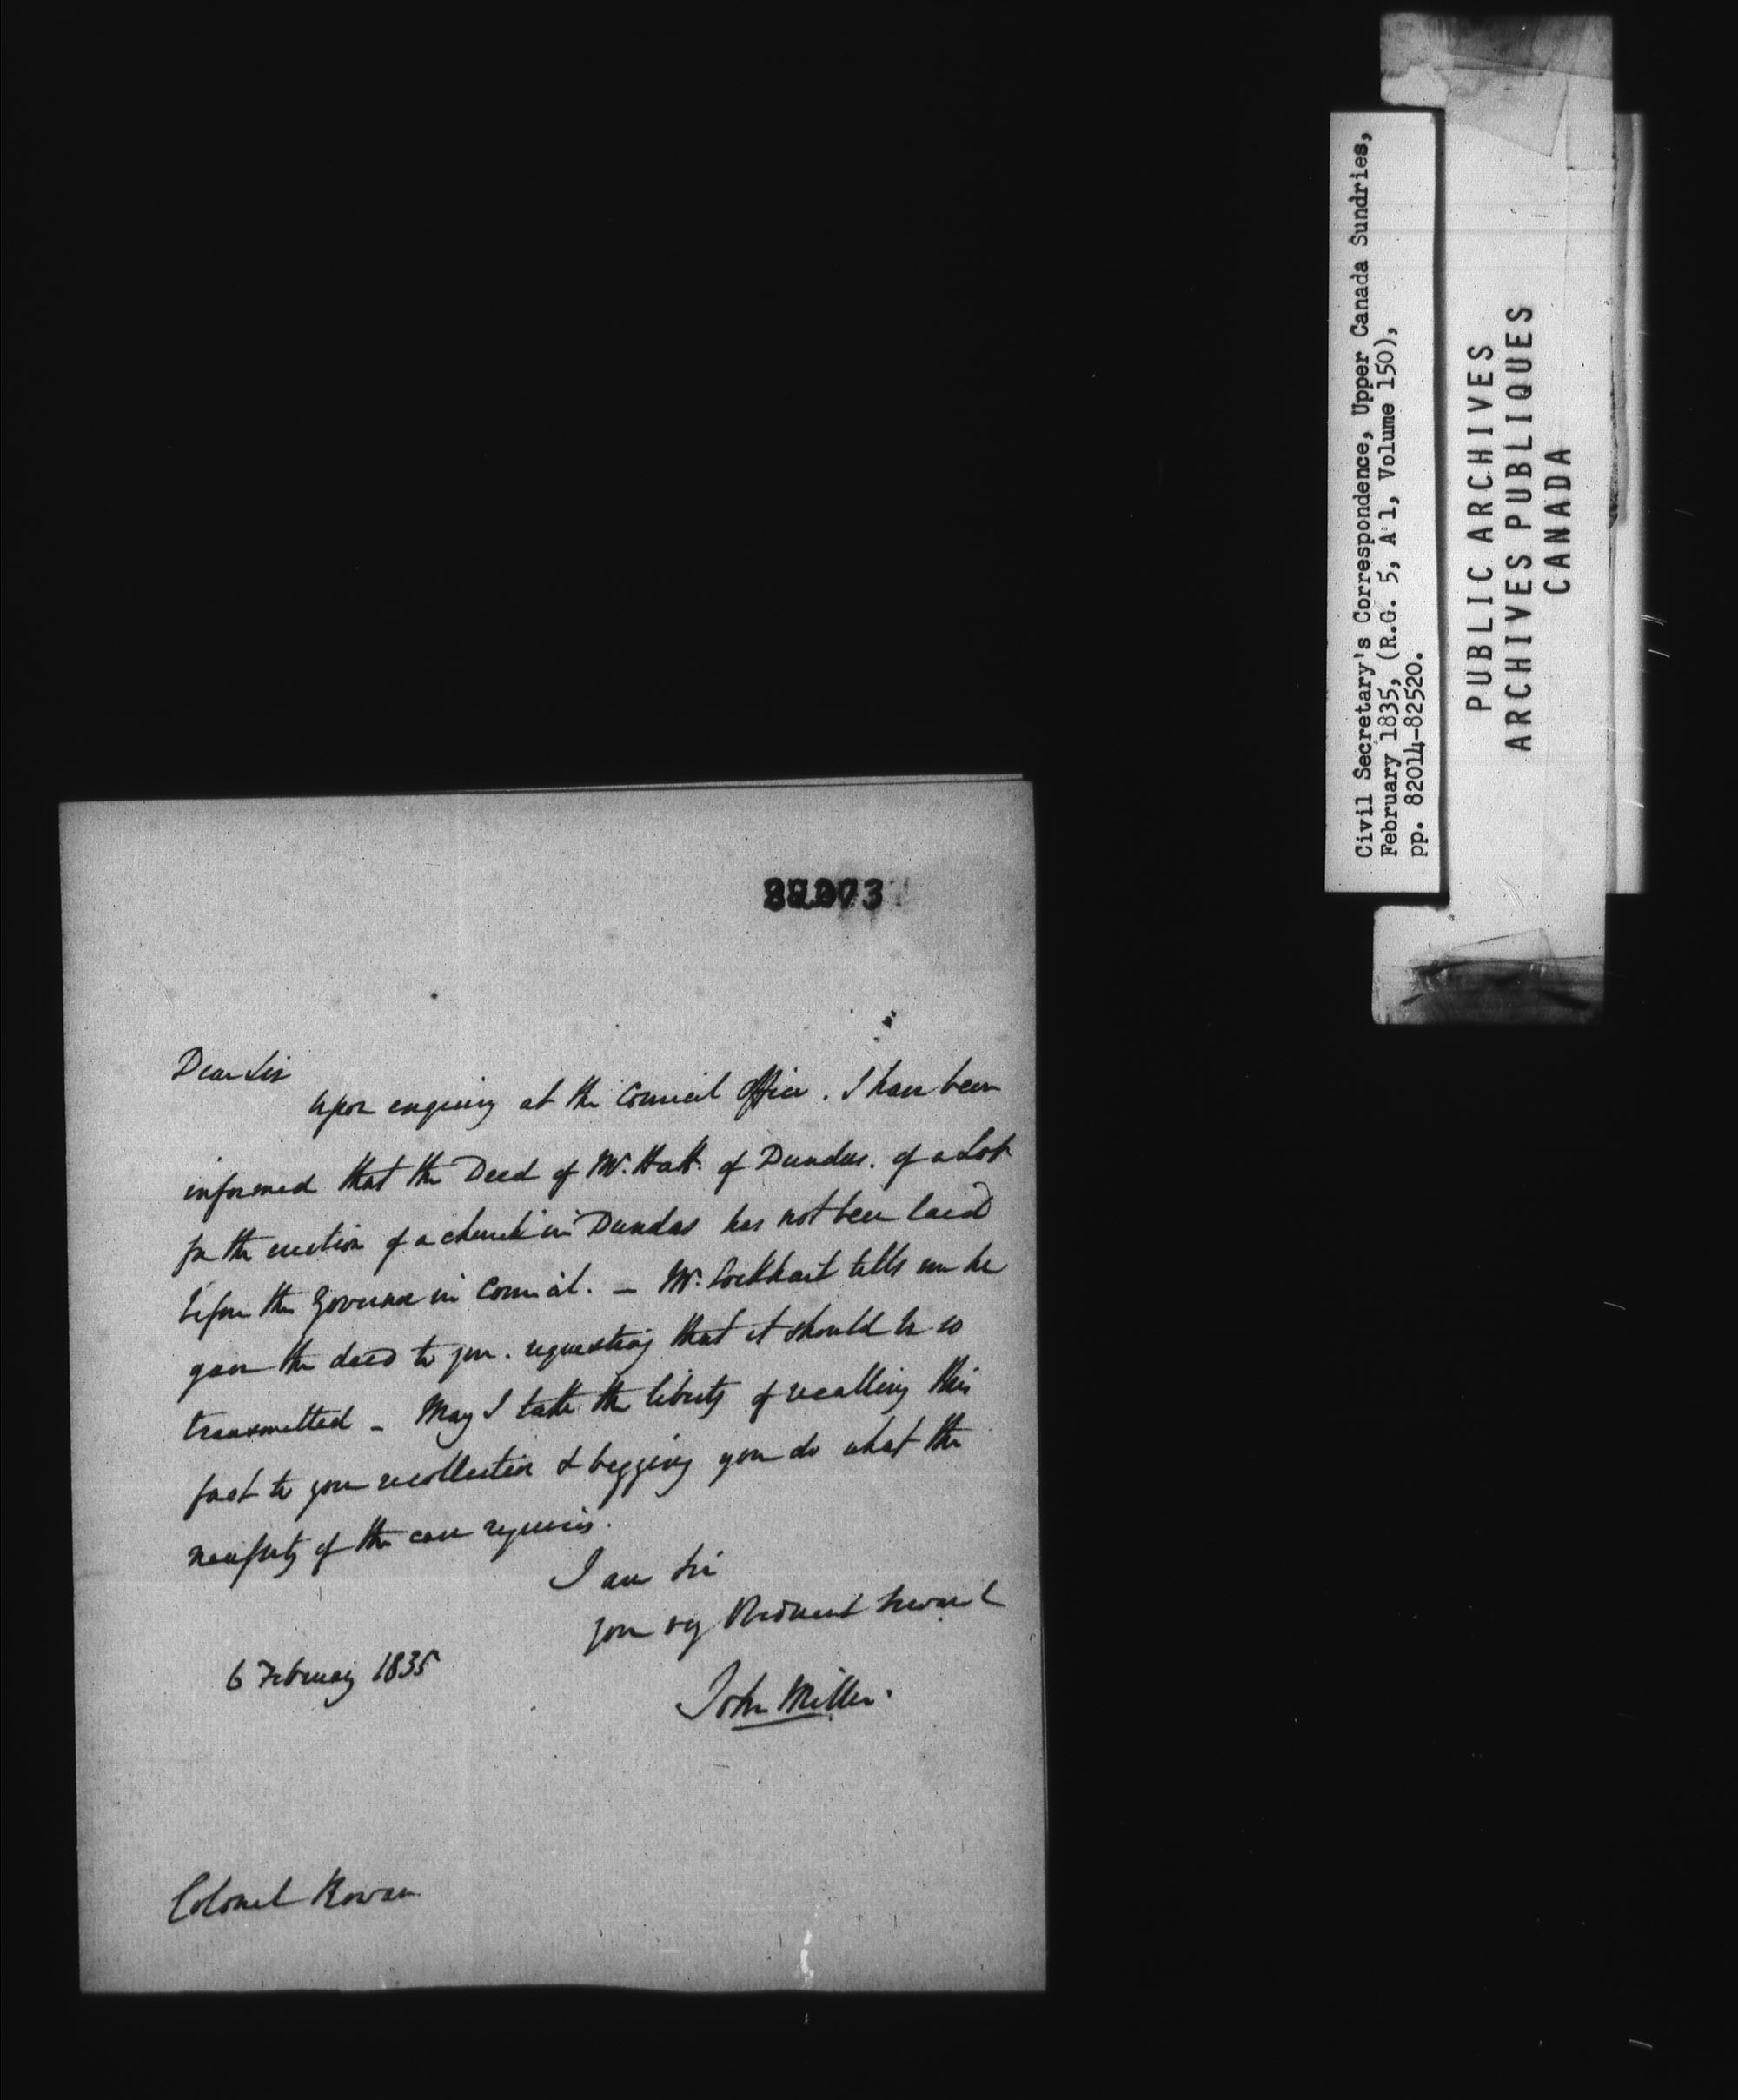 Civil Secretary's Correspondence, Upper Canada Sundries,
February 1835, (R.G. 5, A 1, Volume 150),
pp. 82014-82520.
PUBLIC ARCHIVES
ARCHIVES PUBLIQUES
CANADA
Dear Sir
Upon enquiry at the Council Office. I have been
informed that the Deed of Mr. Hatt. of Dundas. of a Lot
for the erection of a church in Dundas has not been laid
before the Governor in Council. – Mr. Lockhart tells me he
gave the deed to you. requesting that it should be so
transmitted – May I take the liberty of recalling this
fact to your recollection & begging you do what the
necessity of the case requires.
I am Sir
your Obedient Servant
6 February 1835
John Miller.
Colonel Rowan